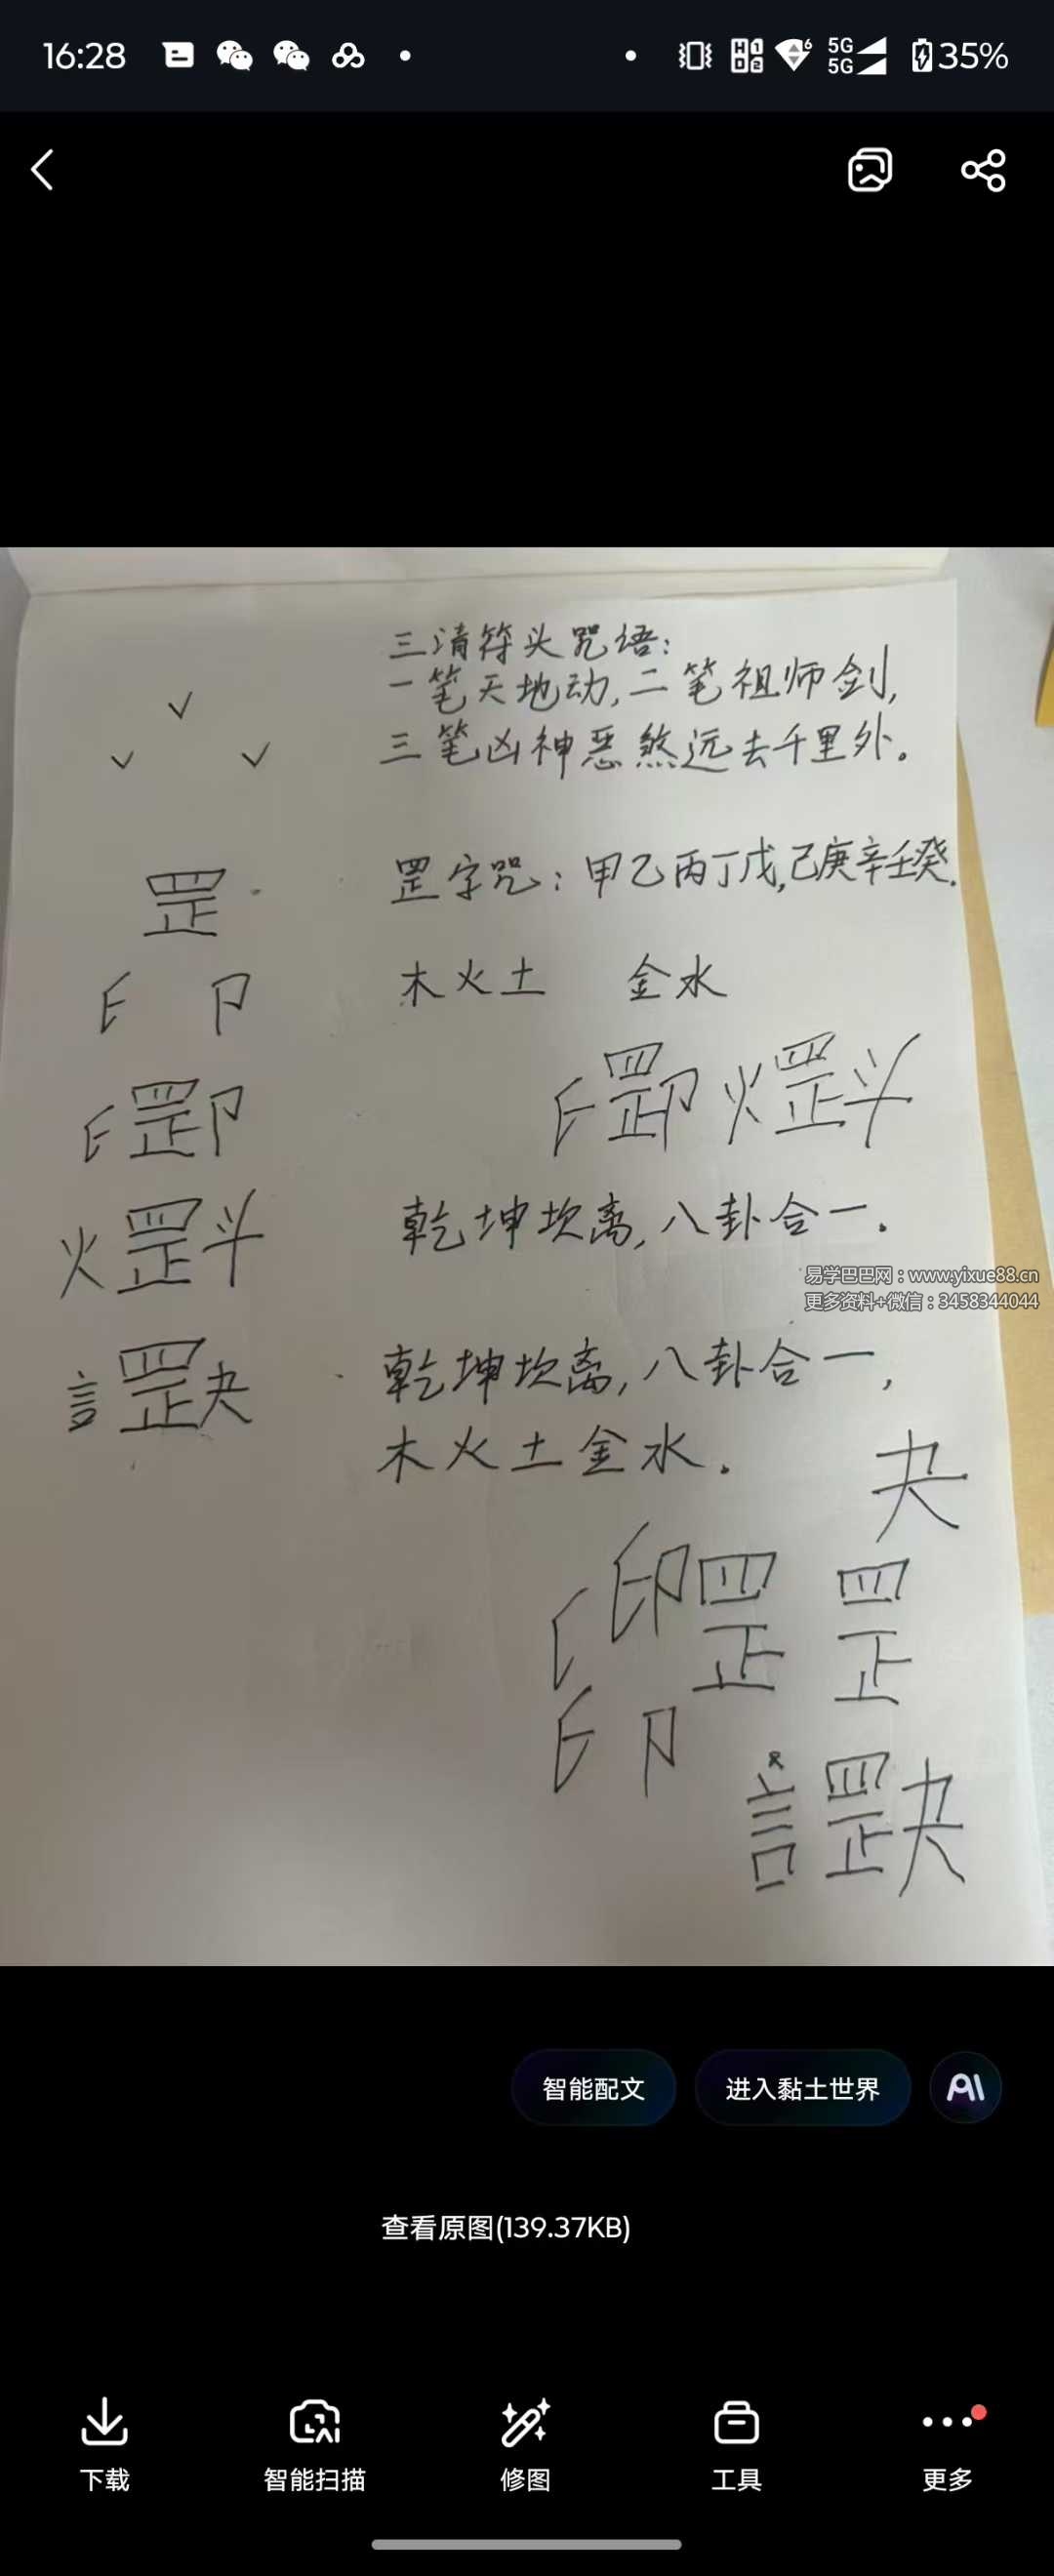 16:28
5G
5G
35%
三清符头咒语：
一笔天地动，二笔祖师剑，
三笔凶神恶煞远去千里外。
罡
罡字咒：甲乙丙丁戊，己庚辛壬癸.
木火土 金水
罡
罡
火罡斗
火罡斗
乾坤坎离，八卦合一.
易学巴巴网：www.yixue88.cn
更多资料+微信：3458344044
乾坤坎离，八卦合一，
木火土金水.
言罡夬
夬
印罡 罡
言罡夬
智能配文
进入黏土世界
AI
查看原图(139.37KB)
下载
智能扫描
修图
工具
更多